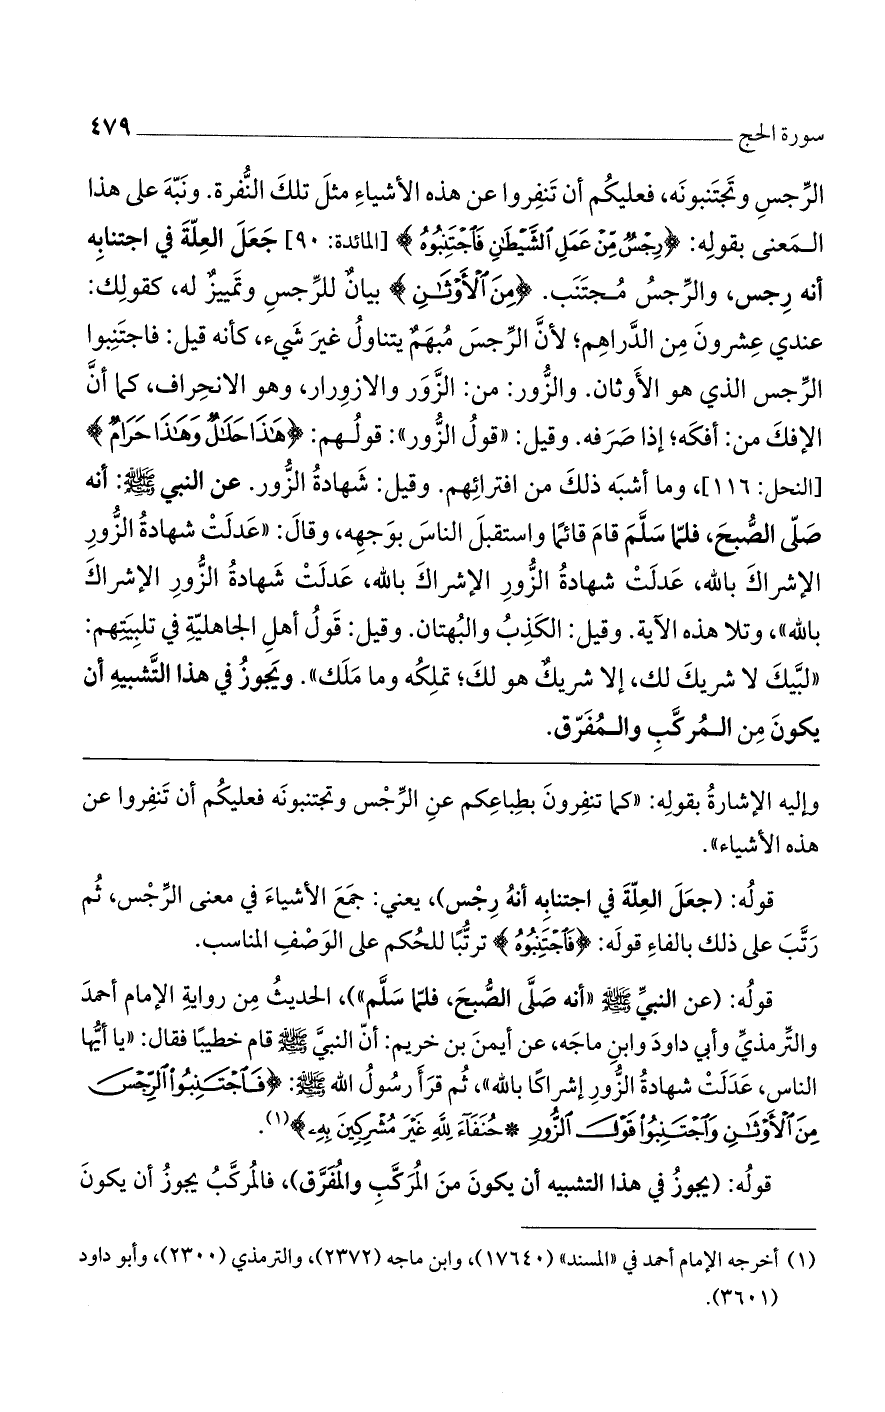 سورة الحج ــــــــــ ٤٧٩
الرِّجسِ وتَجتَنبونَه، فعليكُم أن تَنفِروا عن هذه الأشياءِ مثلَ تلكَ النُّفرة. ونَبّهَ على هذا
المَعنى بقولِه: ﴿رِجْسٌ مِّنْ عَمَلِ ٱلشَّيْطَٰنِ فَٱجْتَنِبُوهُ﴾ [المائدة: ٩٠] جَعَلَ العِلّةَ في اجتنابِه
أنه رِجس، والرِّجسُ مُجتَنَب. ﴿مِنَ ٱلْأَوْثَٰنِ﴾ بيانٌ للرِّجسِ وتمييزٌ له، كقولِك:
عندي عِشرونَ مِن الدَّراهِم؛ لأنَّ الرِّجسَ مُبهَمٌ يتناولُ غيرَ شَيء، كأنه قيل: فاجتَنِبوا
الرِّجس الذي هو الأَوثان. والزُّور: من: الزَّوَر والازوِرار، وهو الانحِراف، كما أنَّ
الإفكَ من: أفكَه؛ إذا صَرَفه. وقيل: «قولُ الزُّور»: قولُهم: ﴿هَٰذَا حَلَٰلٌ وَهَٰذَا حَرَامٌ﴾
[النحل: ١١٦]، وما أشبَه ذلكَ من افترائِهم. وقيل: شَهادةُ الزُّور. عن النبي ﷺ: أنه
صَلّى الصُّبحَ، فلمّا سَلَّمَ قامَ قائمًا واستقبلَ الناسَ بوَجهِه، وقالَ: «عَدلَتْ شهادةُ الزُّورِ
الإشراكَ بالله، عَدلَتْ شهادةُ الزُّورِ الإشراكَ بالله، عَدلَتْ شَهادةُ الزُّورِ الإشراكَ
بالله»، وتلا هذه الآية. وقيل: الكَذِبُ والبُهتان. وقيل: قَولُ أهلِ الجاهليّةِ في تلبيَتِهم:
«لبَّيكَ لا شريكَ لك، إلا شريكٌ هو لكَ؛ تملِكُه وما مَلَك». ويَجوزُ في هذا التَّشبيهِ أن
يكونَ مِن المُركَّبِ والمُفَرّق.
وإليه الإشارةُ بقولِه: «كما تنفِرونَ بطِباعِكم عنِ الرِّجْس وتجتنبونَه فعليكُم أن تَنفِروا عن
هذه الأشياء».
قولُه: (جعَلَ العِلّةَ في اجتنابِه أنهُ رِجْس)، يعني: جمَعَ الأشياءَ في معنى الرِّجْس، ثُم
رَتَّبَ على ذلك بالفاءِ قولَه: ﴿فَٱجْتَنِبُوهُ﴾ ترتُّبًا للحُكم على الوَصْفِ المناسب.
قولُه: (عن النبيِّ ﷺ «أنه صَلَّى الصُّبحَ، فلمّا سَلَّم»)، الحديثُ مِن روايةِ الإمام أحمدَ
والتِّرمذيِّ وأبي داودَ وابنِ ماجَه، عن أيمنَ بن خريم: أنّ النبيَّ ﷺ قام خطيبًا فقال: «يا أيُّها
الناس، عَدَلَتْ شهادةُ الزُّورِ إشراكًا بالله»، ثُم قرَأَ رسُولُ الله ﷺ: ﴿فَٱجْتَنِبُوا۟ ٱلرِّجْسَ
مِنَ ٱلْأَوْثَٰنِ وَٱجْتَنِبُوا۟ قَوْلَ ٱلزُّورِ * حُنَفَآءَ لِلَّهِ غَيْرَ مُشْرِكِينَ بِهِۦ﴾(١).
قولُه: (يجوزُ في هذا التشبيه أن يكونَ منَ المُرَكَّبِ والمُفَرَّق)، فالمُركَّبُ يجوزُ أن يكونَ
(١) أخرجه الإمام أحمد في «المسند» (١٧٦٤٠)، وابن ماجه (٢٣٧٢)، والترمذي (٢٣٠٠)، وأبو داود
(٣٦٠١).